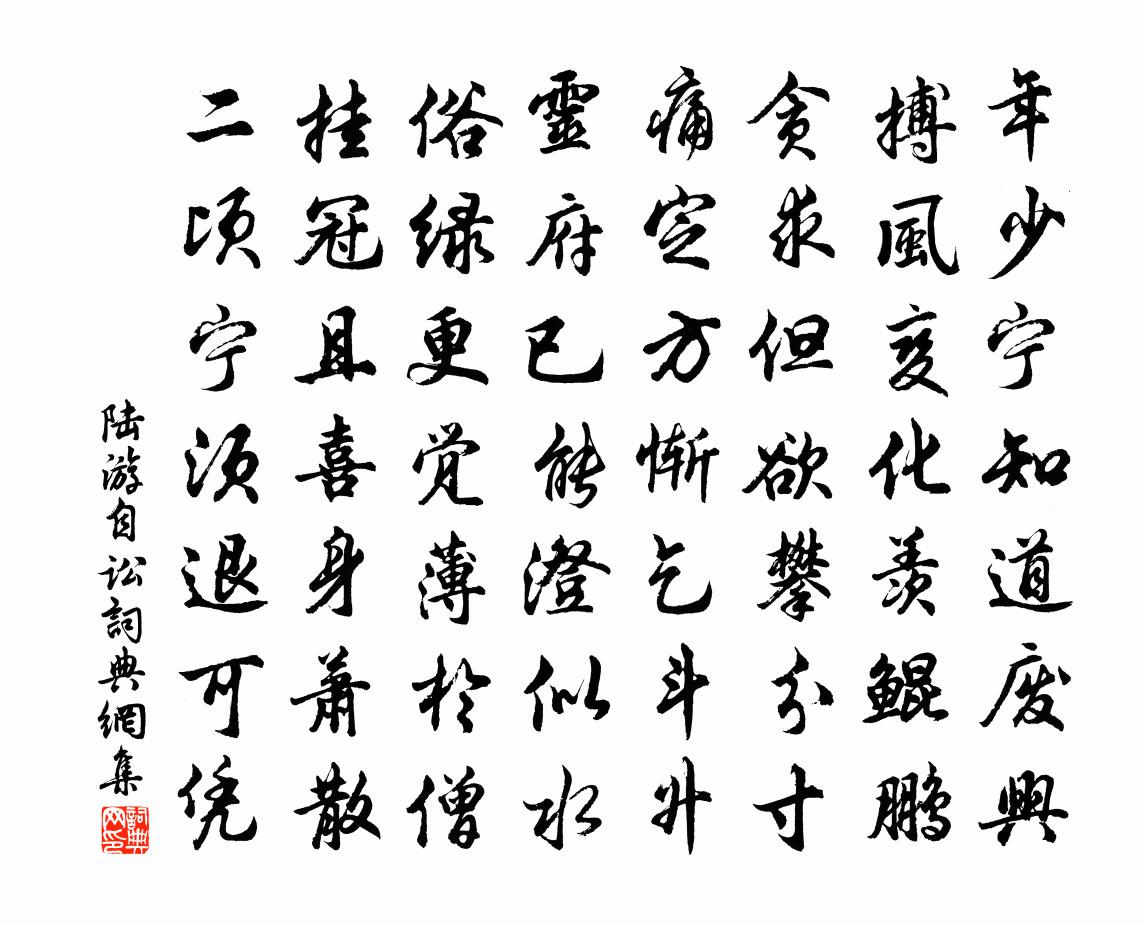 年少宁知道废興
搏風变化羨鲲鹏
贪求但欲攀分寸
痛定方惭乞斗升
靈府已能澄似水
俗緑更觉薄於僧
挂冠且喜身萧散
二顷宁须退可凭
陆游自讼詞典網集
詞典网印